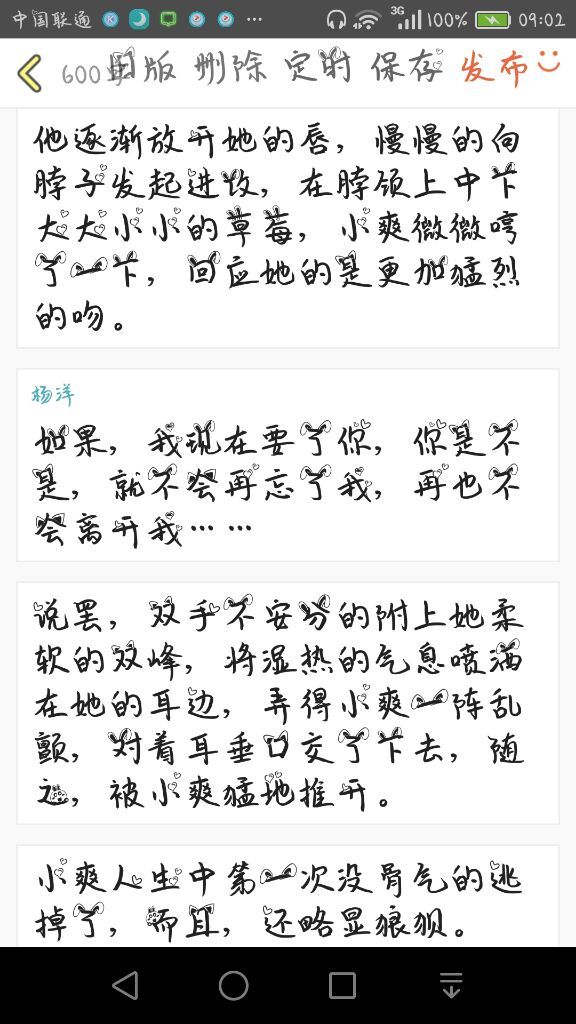 中国联通 3G 100% 09:02
600 旧版 删除 定时 保存 发布
他逐渐放开她的唇，慢慢的向
脖子发起进攻，在脖领上中下
大大小小的草莓，小爽微微哼
了一下，回应她的是更加猛烈
的吻。
杨洋
如果，我现在要了你，你是不
是，就不会再忘了我，再也不
会离开我……
说罢，双手不安分的附上她柔
软的双峰，将湿热的气息喷洒
在她的耳边，弄得小爽一阵乱
颤，对着耳垂口交了下去，随
之，被小爽猛地推开。
小爽人生中第一次没骨气的逃
掉了，而且，还略显狼狈。